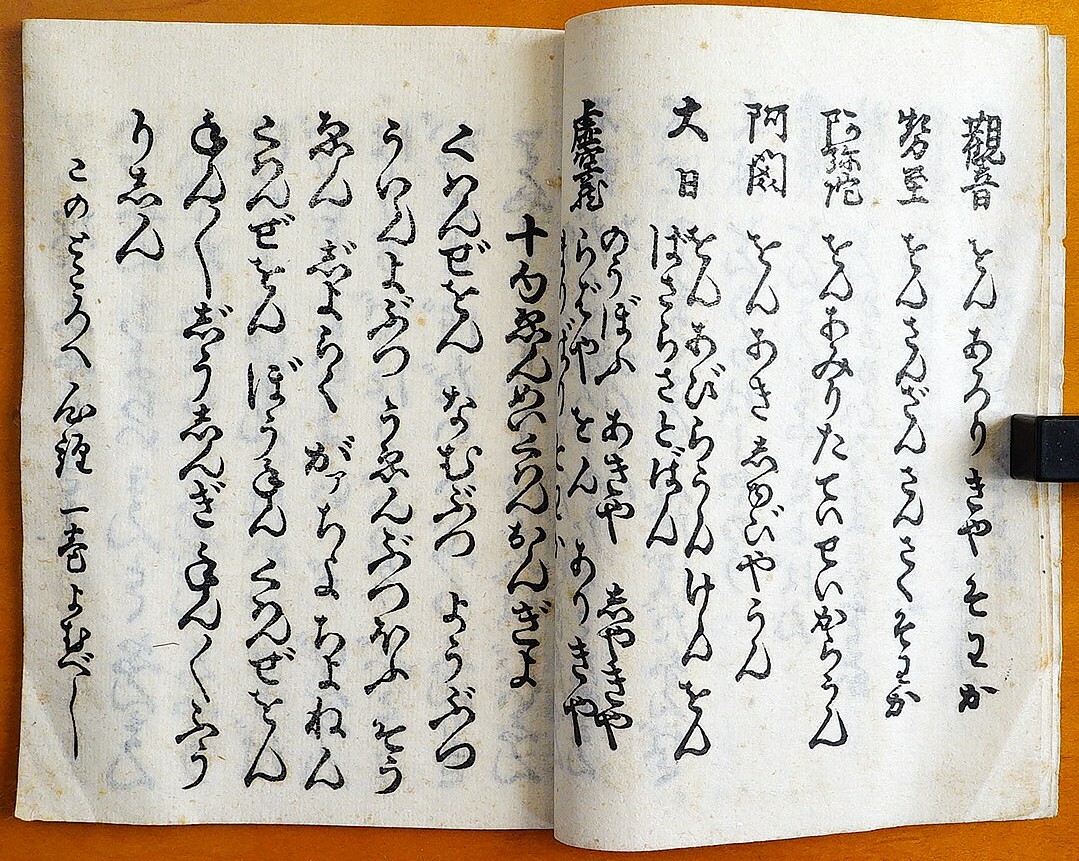 觀音 をん あろりきや そわか
勢至 をん さんざんさく そわか
阿弥陀 をん あみりた ていせいからうん
阿閦 をん あきしゆびやうん
大日 をん あびらうんけん をん
ばさらさとばん
虚空蔵 のうぼふ あきや しやきや
らばや をん ありきや
十句ゑんめいくわんおんぎよ
くわんぜをん なむぶつ ようぶつ
ういんよぶつ うゑんぶつほふ そう
ゑん じよらく がァ ちよ ちよねん
くわんぜをん ぼうねん くわんぜをん
ねん〱じう しんぎ ねん〱ふう
りしん
このところへ 心経 一巻よむべし